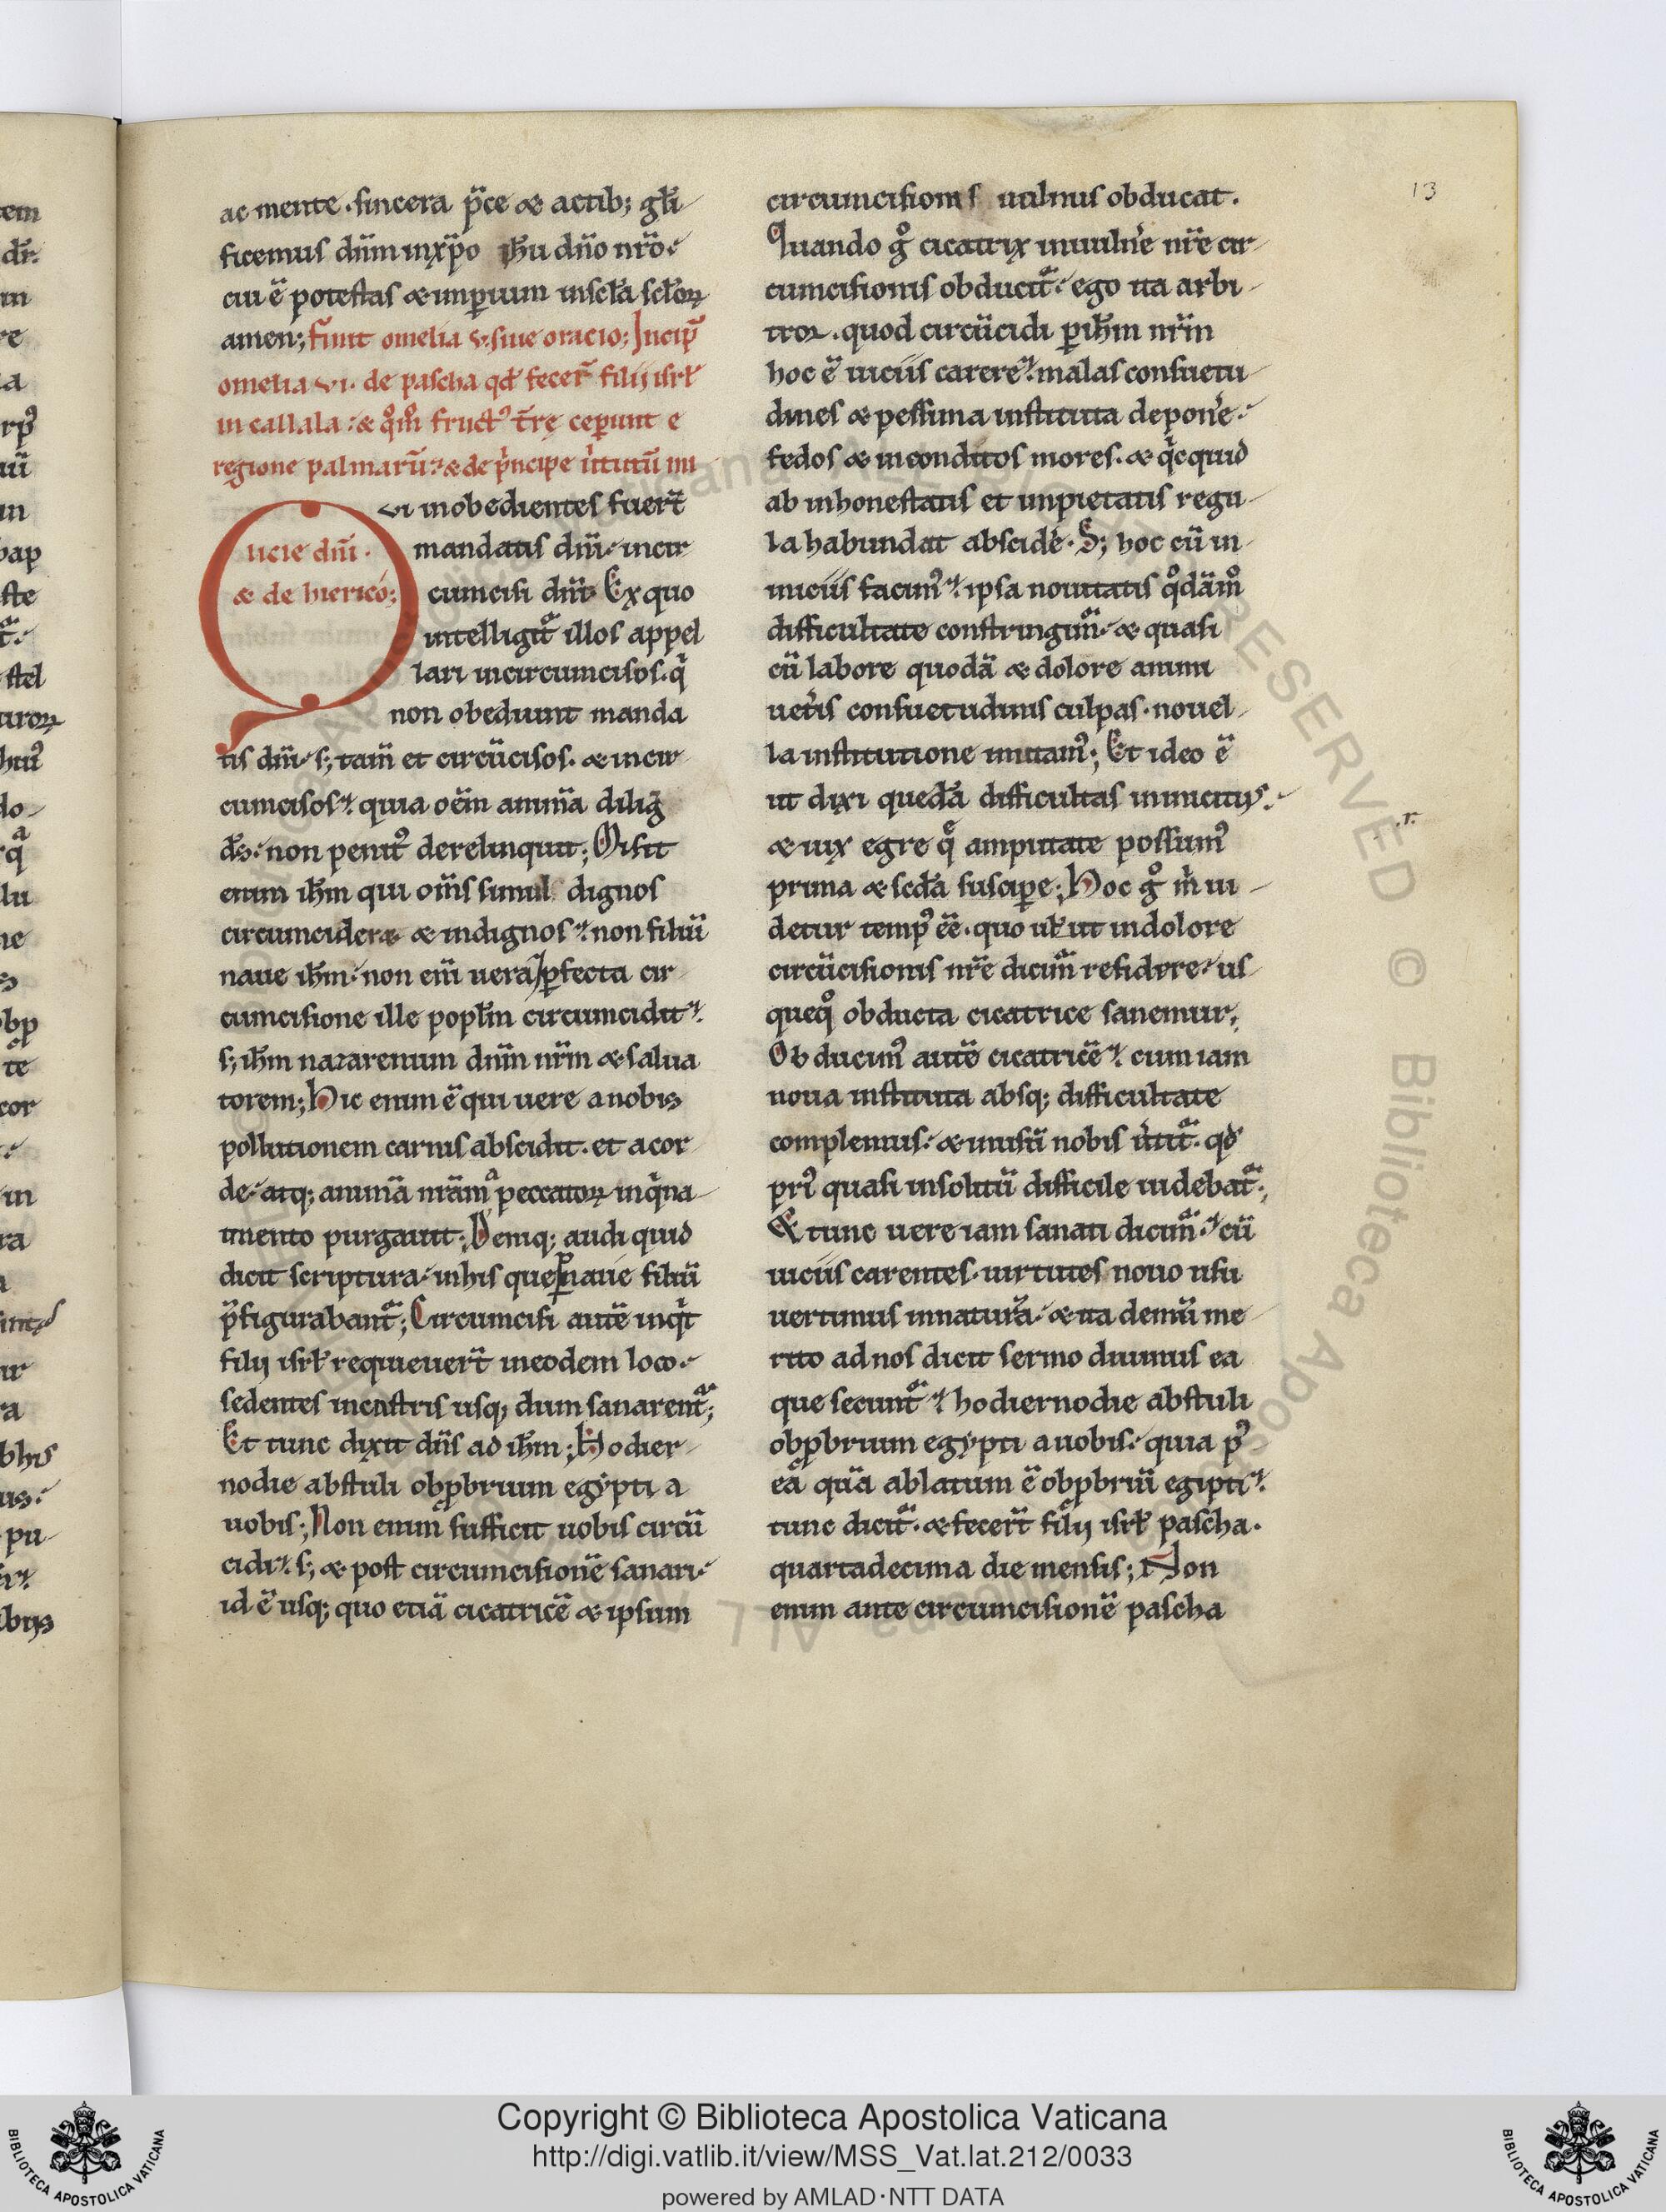 ac mente. sincera p̄ce & actib; glī
ficemus dn̄m inxp̄o ihū dn̄o nr̄o.
cui ē potestas & imperium inscl̄a scl̄oꝝ
amen; finit omelia v. siue oracio; Incip̄
omelia vi. de pascha qd̄ fecer̄ filii isrl̄
in callala: & qͦm̄ fructꝰ tr̄ę ceperunt e
regione palmarū: & de pͥncipe uͥtutū mi
Qui inobedientes fuer̄t
licie dn̄i.
& de hiericó;
mandatis dn̄i. incir
cumcisi dn̄r. Ex quo
intelligit᷑ illos appel
lari incircumcisos. qͥ
non obediunt manda
tis dn̄i. s; tam̄ et circūcisos. & incir
cumcisos. quia oēm animā diliḡ
ds̄. non penitꝰ derelinquit; Misit
enim ihm̄ qui om̄s simul dignos
circumcideret & indignos. non filiū
naue ihm̄. non eni̅ uera ꝑfecta cir
cumcisione ille popl̄m circumcidit.
s; ihm̄ nazarenum dn̄m nr̄m & salua
torem; Hic enim ē qui uere anobis
pollutionem carnis abscidit. et acor
de. atq; animā nr̄am a peccatoꝝ inqͥna
mento purgauit; Deniq; audi quid
dicit scriptura. inhis que per naue filiū
p̄figurabant᷑; Circumcisi autē inqͥt
filij isrl̄ requieuer̄t ineodem loco.
sedentes incastris usq; dum sanarent᷑;
Et tunc dixit dn̄s ad ihm̄; Hodier
nodie abstuli obꝓbrium egẏpti a
uobis; Non enim sufficit uobis circū
cidi. s; & post circumcisionē sanari.
id ē usq; quo etiā cicatricē & ipsum
circumcisionis uulnus obducat.
Quando gͦ cicatrix inuulnͤe nr̄e cir
cumcisionis obducit᷑. ego ita arbi
tror. quod circūcidi ꝑ ihm̄ nr̄m
hoc ē uiciis carere. malas consuetu
dines & pessima instituta deponͤe.
fedos & inconditos mores. & qͥcquid
ab inhonestatis et inpietatis regu
la habundat abscidͤe. S; hoc cū in
iniciis facimꝰ. ipsa nouitatis qͦdāmͦ
difficultate constringim᷑. & quasi
cū labore quodā & dolore animi
uetͤis consuetudinis culpas. nouel
la institutione mutamꝰ; Et ideo ē
ut dixi quedā difficultas ininiciis.
& uix egre qͤ amputate possumꝰ
prima & scd̄a suscipe; Hoc gͦ mͥ ui
detur tempꝰ ēē. quo uel̄ut indolore
circūcisionis nr̄e dicim᷑ residere. us
queqͦ obducta cicatrice sanemur;
Obducimꝰ autē cicatricē. cum iam
noua instituta absq; difficultate
complemus. & inusū nobis uͥtit᷑. qd̄
priꝰ quasi insolitū difficile uidebat᷑;
& tunc uere iam sanati dicim᷑. cū
uiciis carentes. uirtutes nouo usu
uertimus innaturā. & ita demū me
rito adnos dicit sermo diuinus ea
que secunt᷑. hodiernodie abstuli
obꝓbrium egẏpti auobis. quia pꝰ
eā quā ablatum ē obꝓbriū egipti.
tunc dicit᷑. & fecer̄t filij isrl̄ pascha.
quartadecima die mensis; Non
enim ante circumcisionē pascha
13
.r.
Copyright © Biblioteca Apostolica Vaticana
http://digi.vatlib.it/view/MSS_Vat.lat.212/0033
powered by AMLAD·NTT DATA
BIBLIOTECA APOSTOLICA VATICANA
BIBLIOTECA APOSTOLICA VATICANA